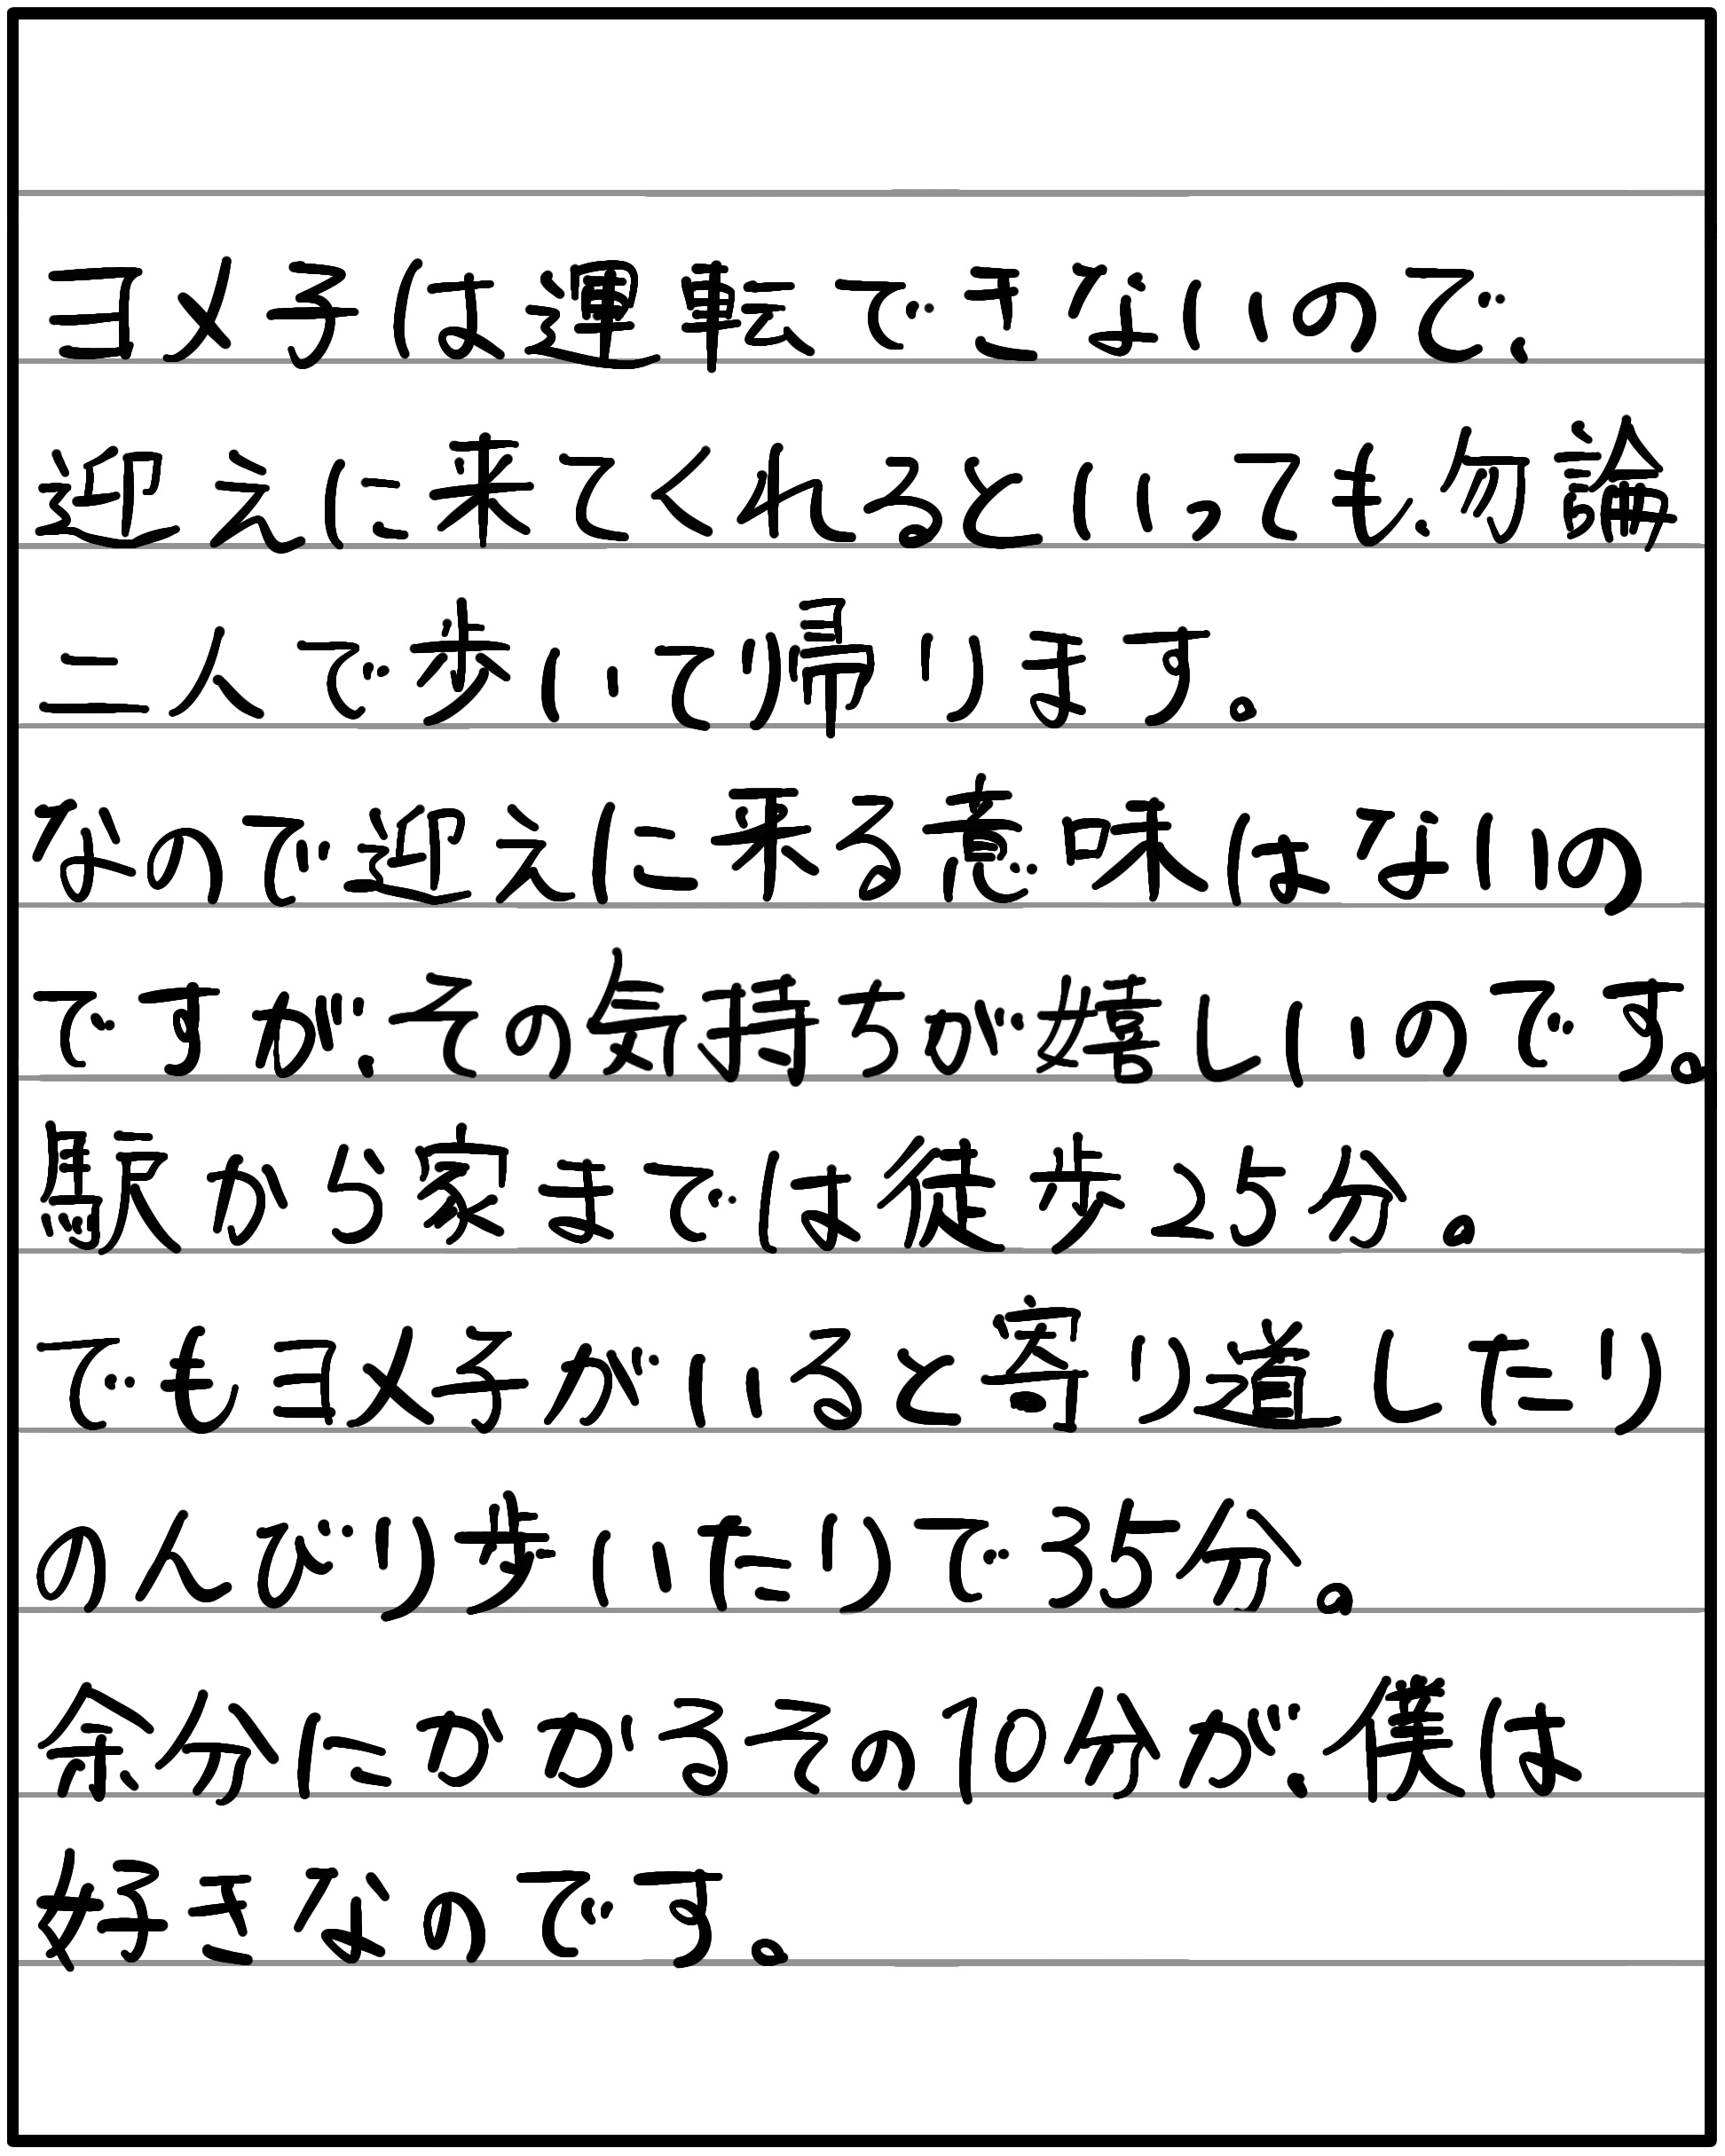 ヨメ子は運転できないので、
迎えに来てくれるといっても、勿論
二人で歩いて帰ります。
なので迎えに来る意味はないの
ですが、その気持ちが嬉しいのです。
駅から家までは徒歩25分。
でもヨメ子がいると寄り道したり
のんびり歩いたりで35分。
余分にかかるその10分が、僕は
好きなのです。